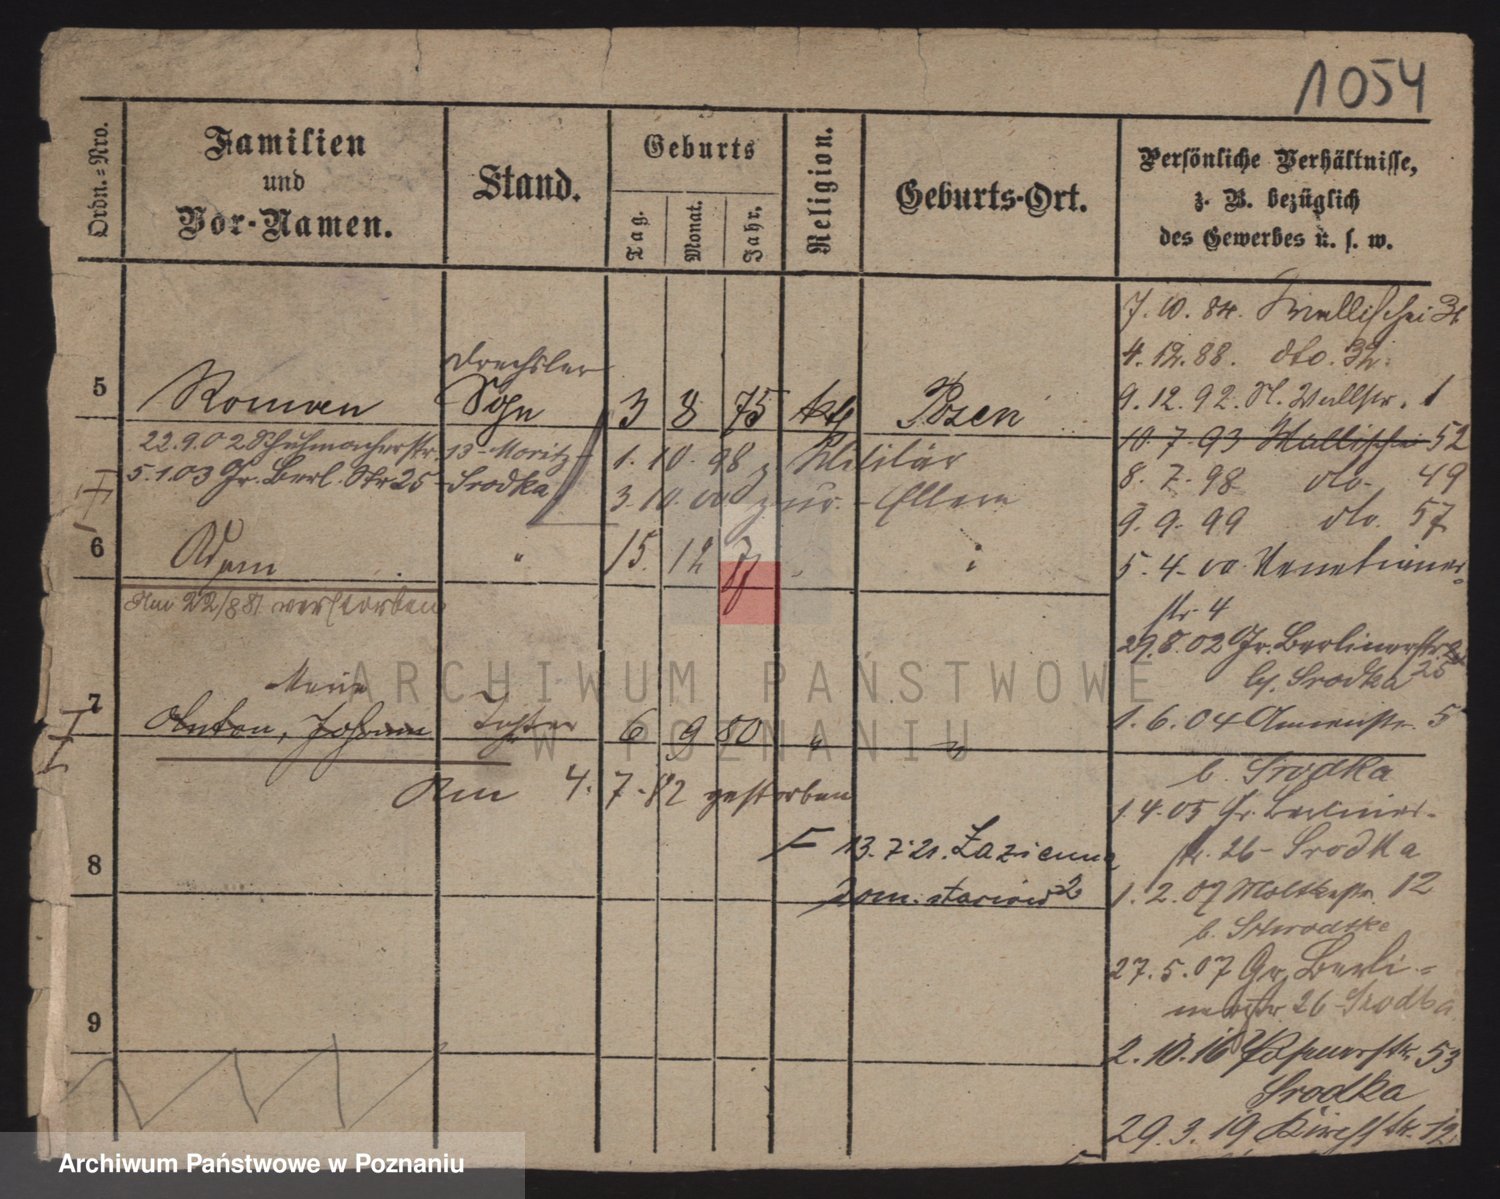 1054
Ordn.-Nro.
Familien
und
Vor-Namen.
Stand.
Geburts
Tag.
Monat.
Jahr.
Religion.
Geburts-Ort.
Persönliche Verhältnisse,
z. B. bezüglich
des Gewerbes u. s. w.
7. 10. 84. Wallischei
4. 12. 88. dto. 32.
9. 12. 92. Wallstr. 1
10. 7. 93 Wallischei 52
8. 7. 98 dto. 49
9. 9. 99 dto. 57
5. 4. 00 Venetianer-
str. 4
29. 8. 02 Gr. Berlinerstr.
b/. Srodka 25
1. 6. 04 5
b. Srodka
1. 4. 05 Gr. Berliner-
str. 26 - Srodka
1. 2. 07 Moltkestr. 12
b. Schrodtke
27. 5. 07 Gr. Berli-
nerstr. 26 - Srodka
2. 10. 16 Posenerstr. 53
Srodka
29. 3. 19 12
5
Roman
Drechsler
Sohn
3 8 75 kth Posen
22. 9. 02 Schuhmacherstr. 13 - Moritz
1. 10. 98 z. Militär
5. 1. 03 Gr. Berl. Str 25 - Srodka
3. 10. 00 zur. - Eltern
6
Adam " 15. 12 77
Am 22/8 81 verstorben
7
Maria
Anton, Johann Tochter 6 9 80 " "
Am 4. 7. 82 gestorben
8
13. 7. 21. Łazienna
2
9
ARCHIWUM PAŃSTWOWE
W POZNANIU
Archiwum Państwowe w Poznaniu